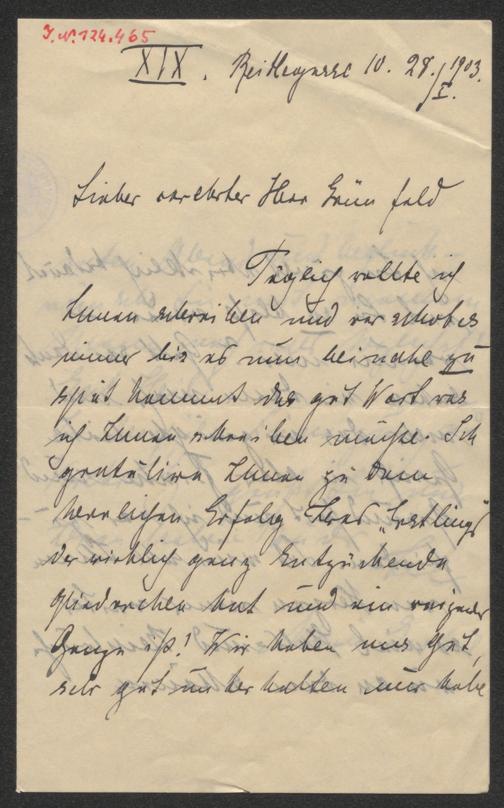 J.N. 124.465
XIX. Reithegasse 10. 28./I. 1903.
Lieber verehrter Herr Grünfeld
Täglich wollte ich
Ihnen schreiben und verschob es
immer bis es nun beinahe zu
spät kommt das gute Wort was
ich Ihnen schreiben möchte. Ich
gratulire Ihnen zu dem
herrlichen Erfolg Ihres „Erstlings"
der wirklich ganz entzückende
Gliederchen hat und ein reizendes
Ganze ist! Wir haben uns gut,
sehr gut unterhalten nur habe